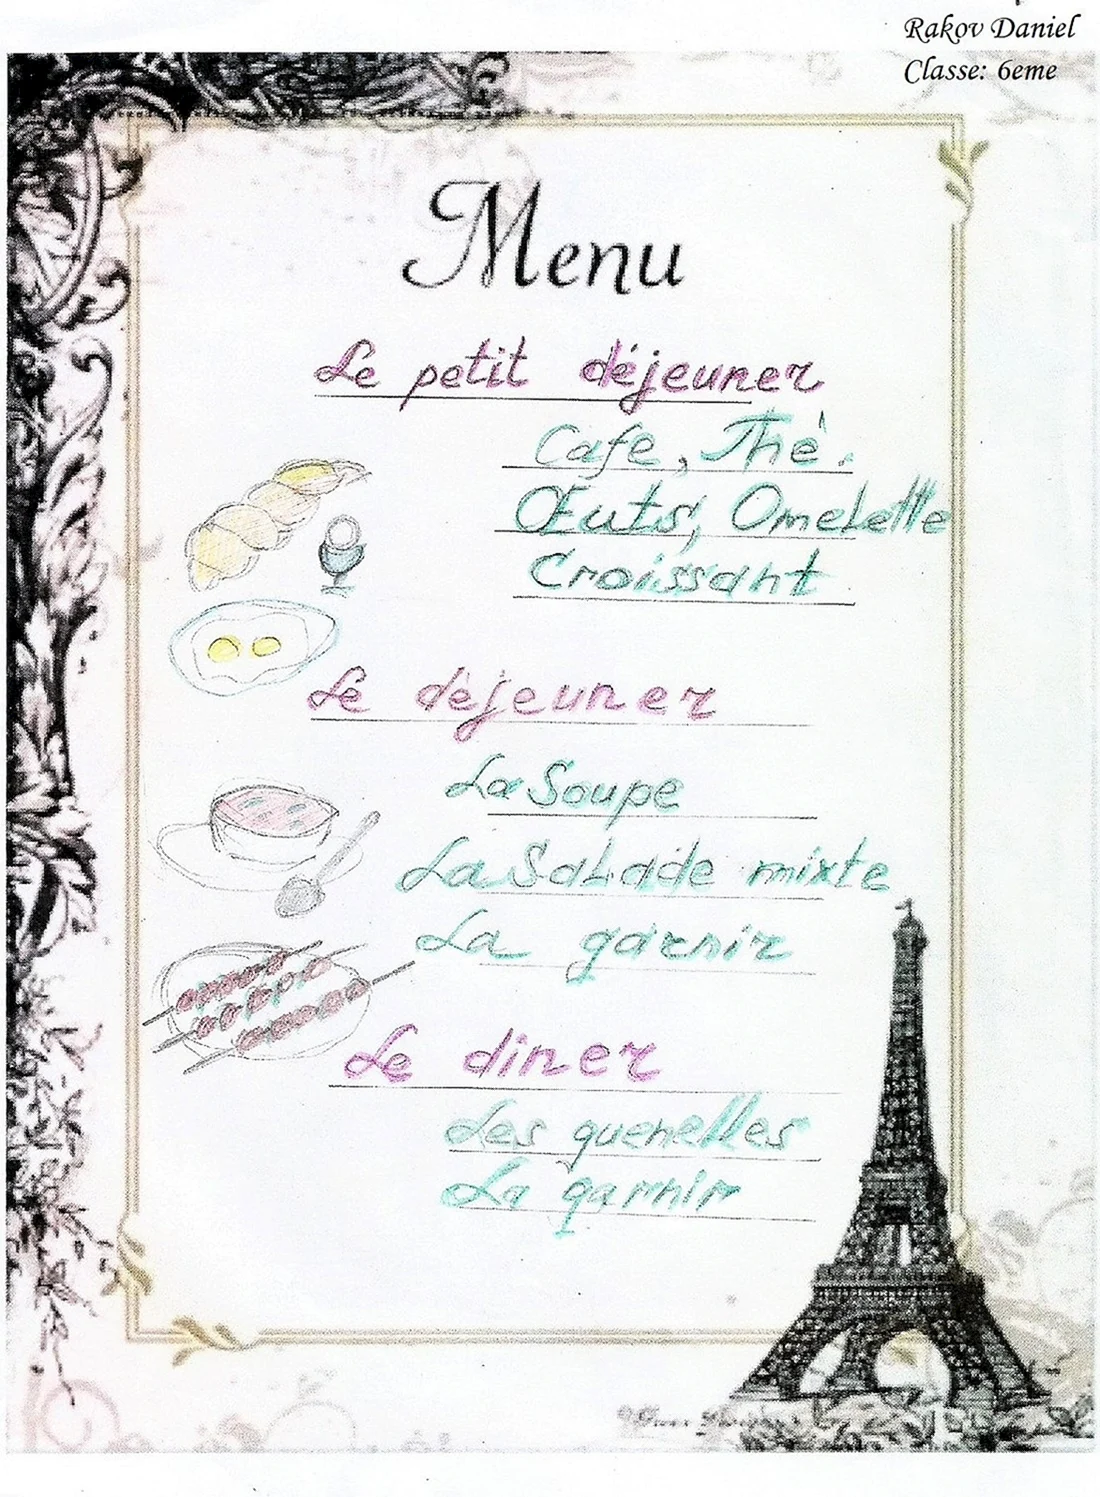 Rakov Daniel
Classe: 6eme
Menu
Le petit déjeuner
Cafe, Thè.
Œuts, Omelette
Croissant
Le déjeuner
La Soupe
La Salade mixte
La garnir
Le diner
Les quenelles
La garnir